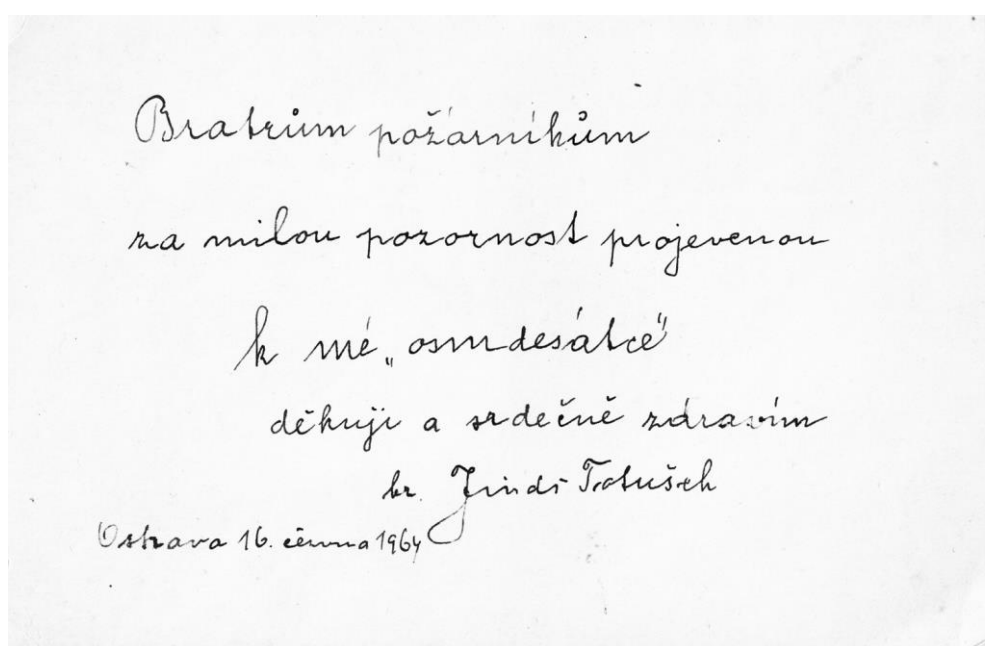 Bratrům požárníkům
za milou pozornost projevenou
k mé „osmdesátce"
děkuji a srdečně zdravím
br. Jindř
Ostrava 16. června 1964